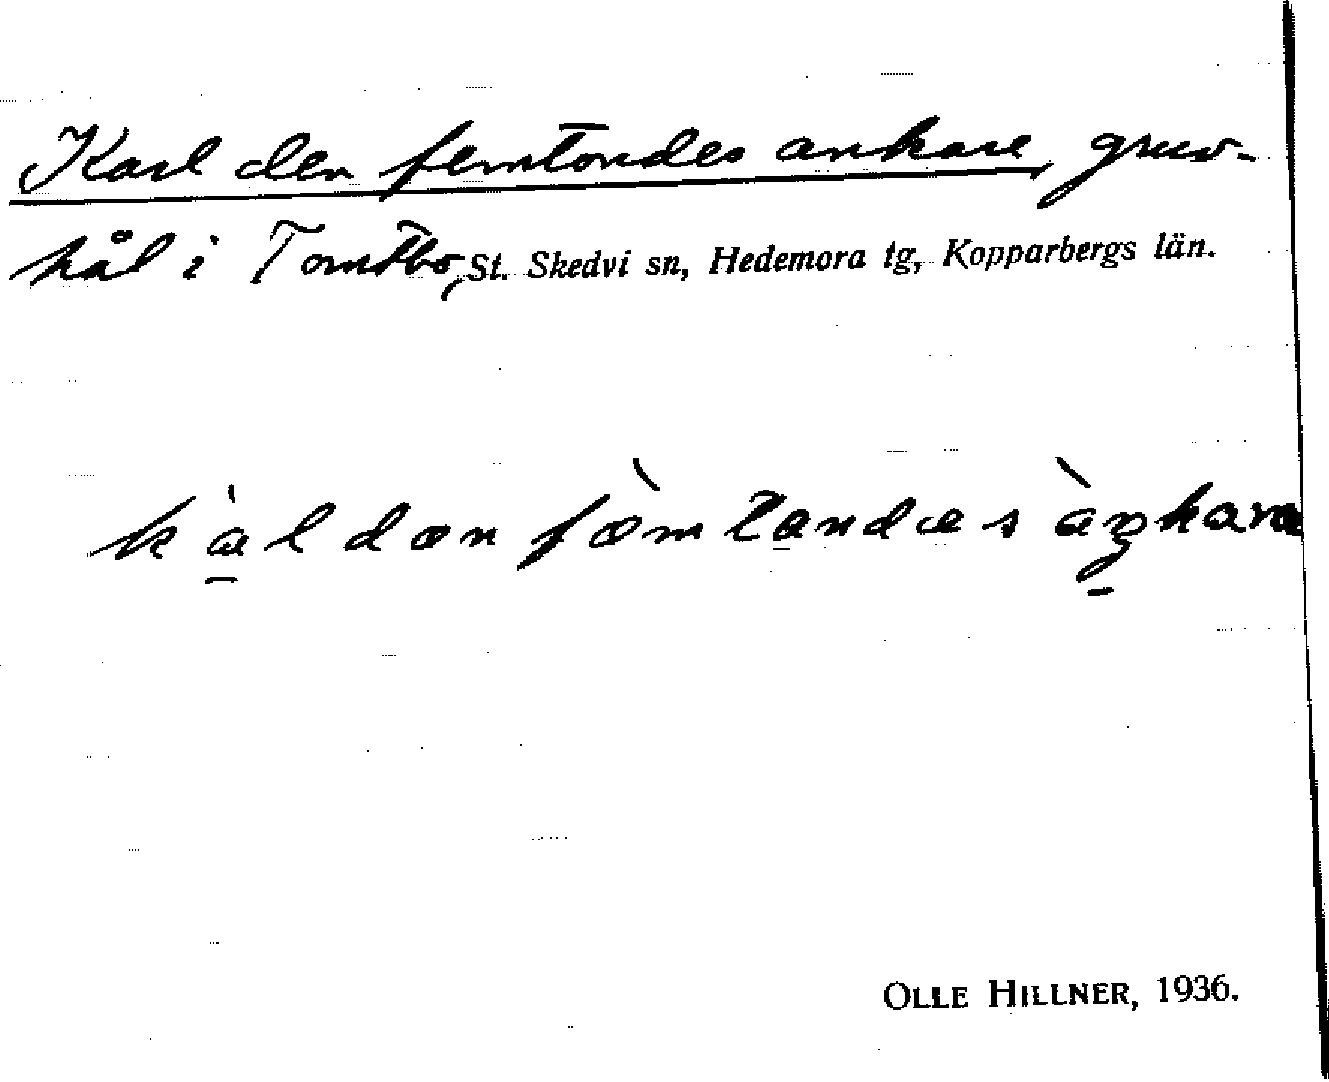 Karl den femtondes ankare, gruv-
hål i Tomtbo, St. Skedvi sn, Hedemora tg, Kopparbergs län.
OLLE HILLNER, 1936.